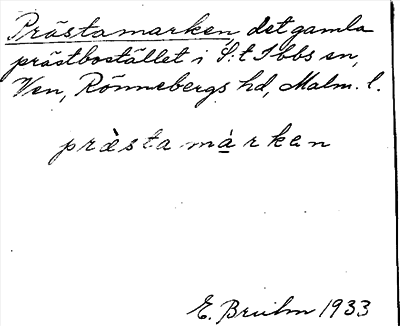 Prästamarken, det gamla
prästbostället i S:t Ibbs sn,
Ven, Rönnebergs hd, Malm. l.
prὰsta màrken
E. Bruhn 1933